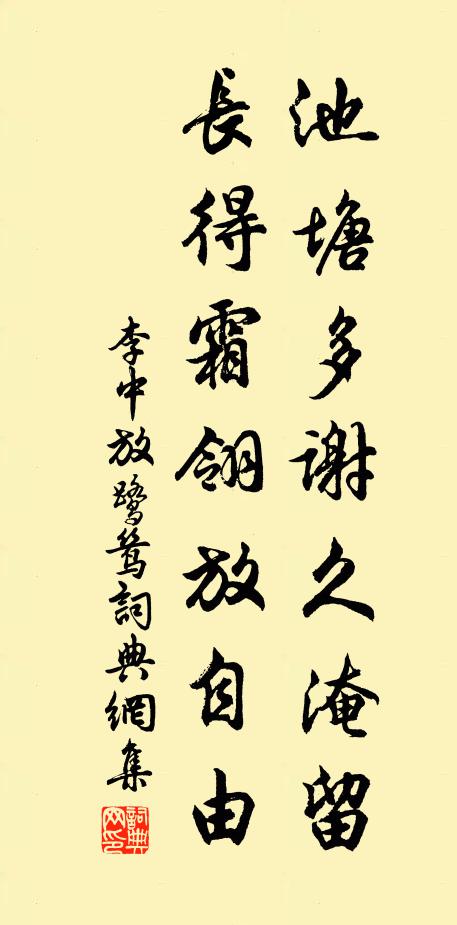 池塘多謝久淹留
長得霜翎放自由
李中放鷺鷥詞典網集
詞典網印